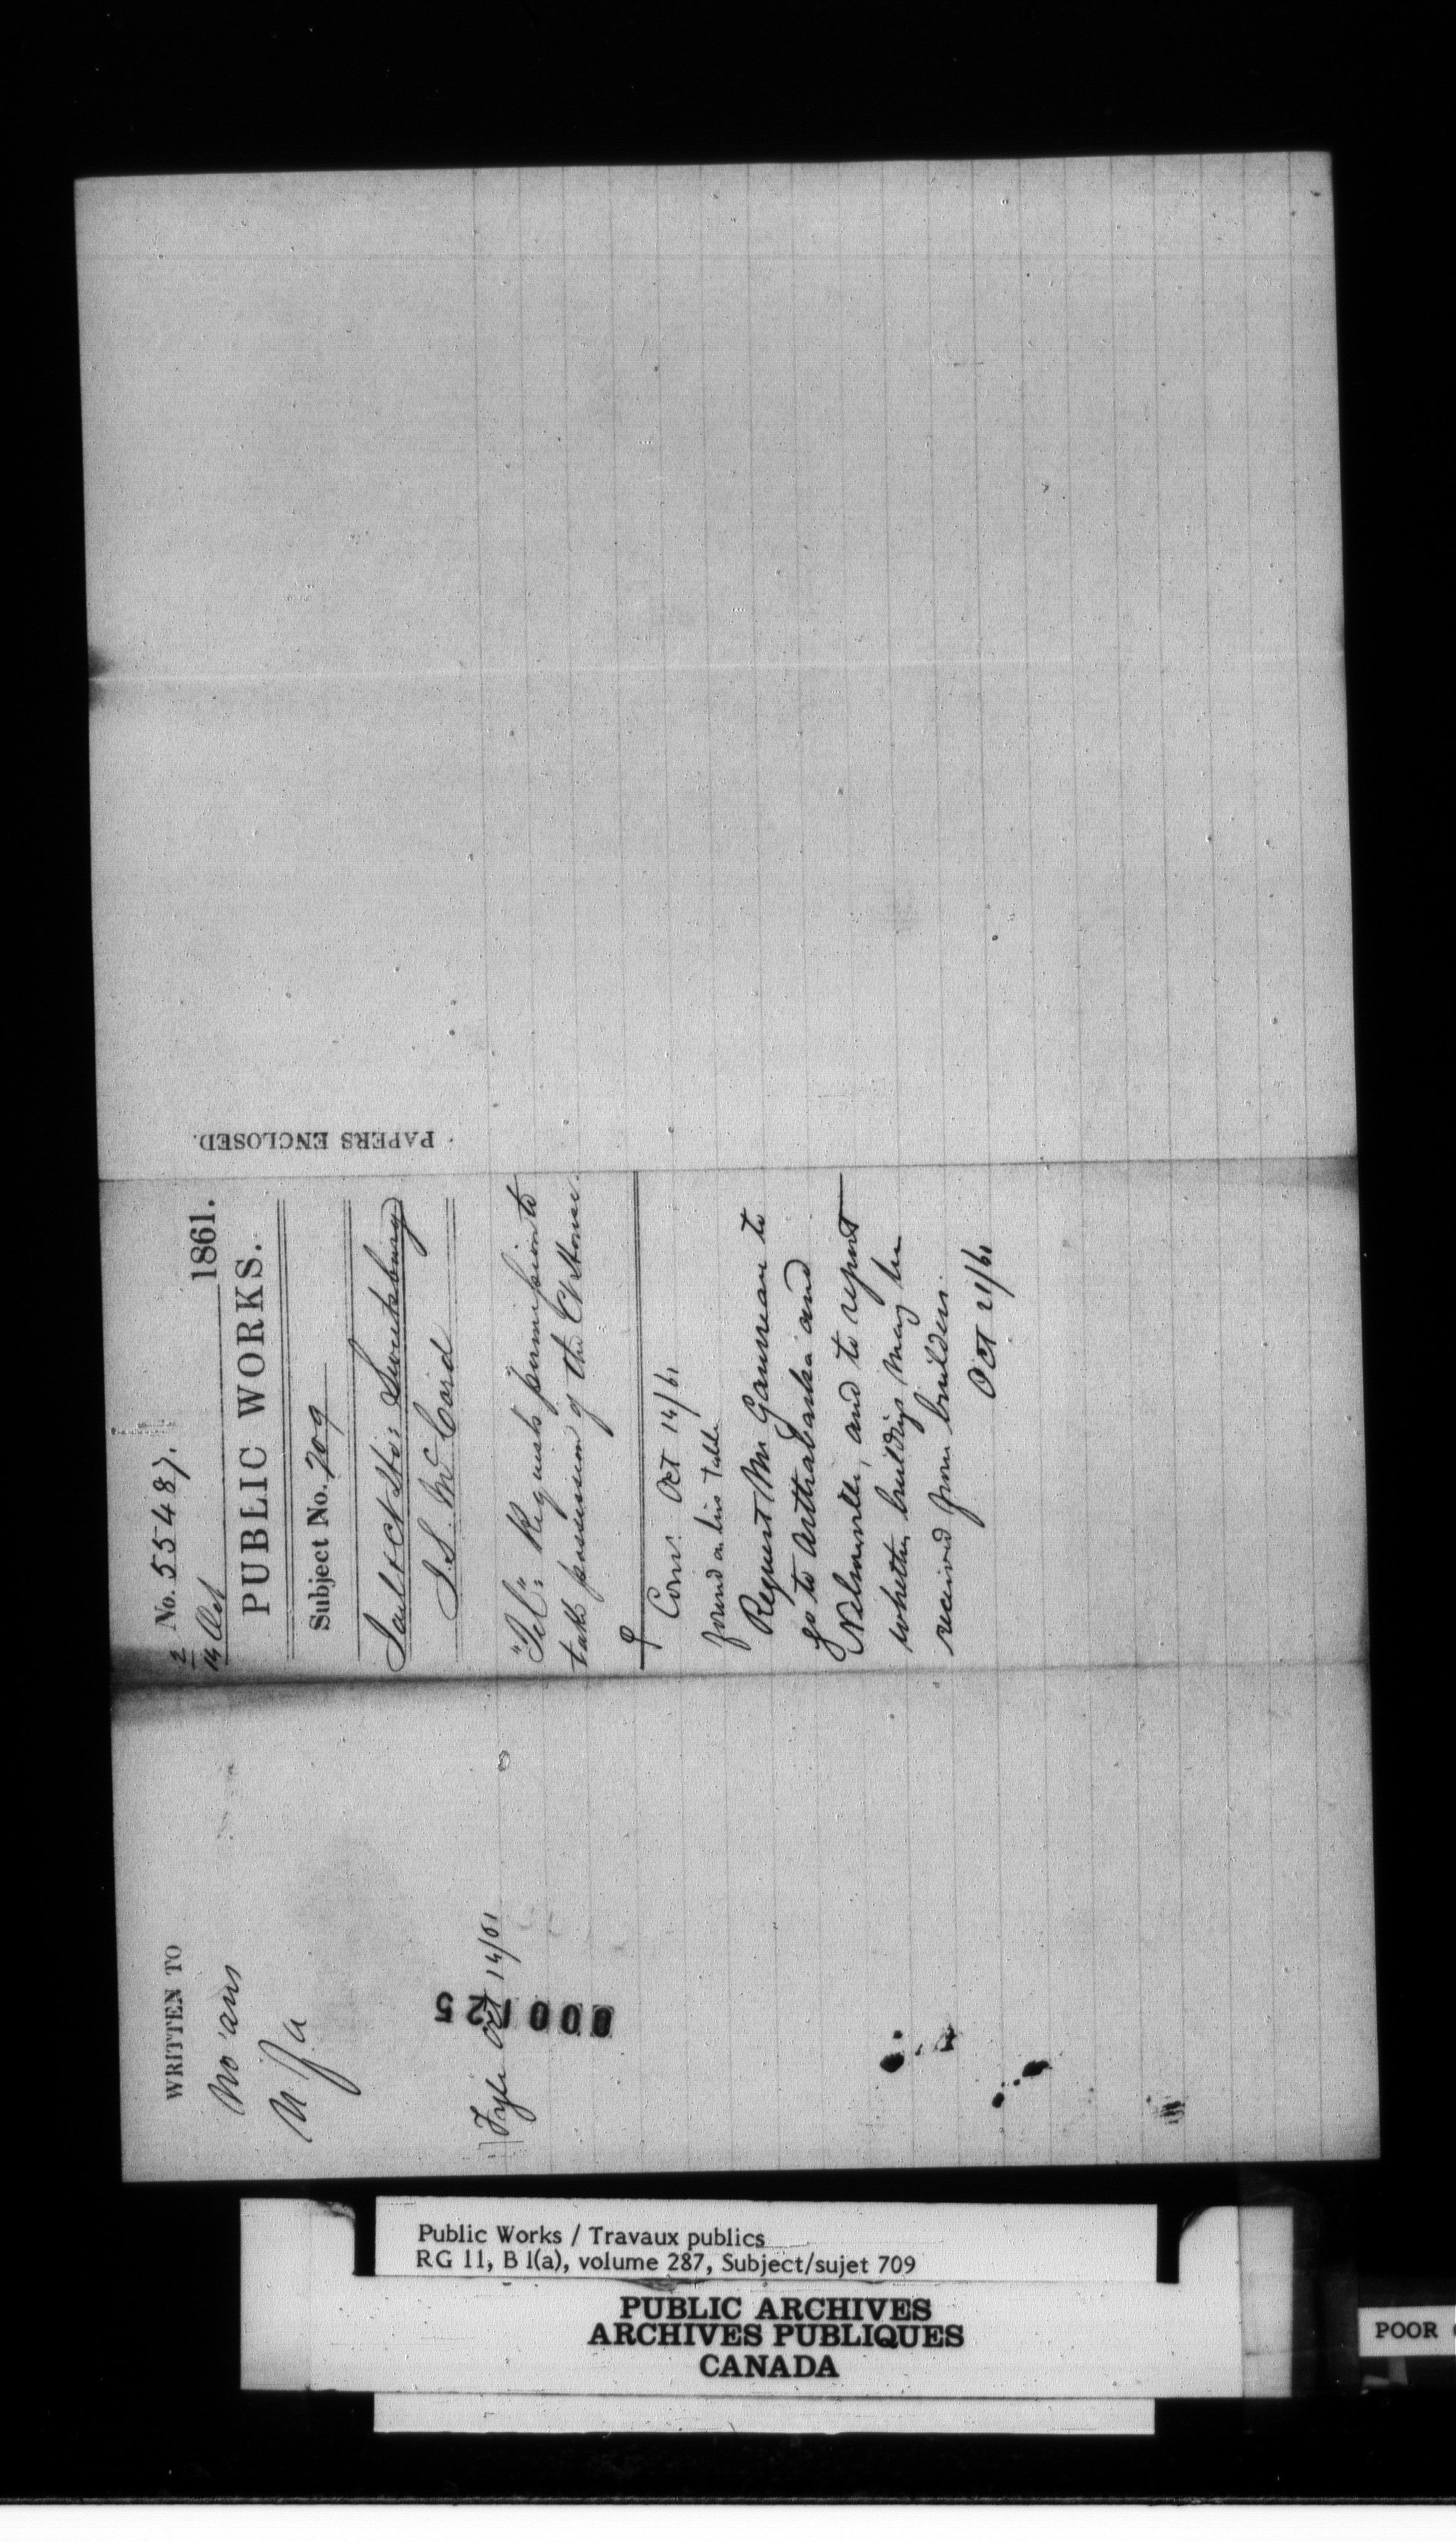 WRITTEN TO
No ans
Fyle Oct 14/61
000125
2 No. 55487.
14 Oct 1861.
PUBLIC WORKS.
Subject No. 709
Gaol & Ct Ho: Sweetsburg
J. S. McCord
"Tel": Requests permission to
take possession of the Ct House.
Com: Oct 14/61
found on his table
Request Mr Gauvreau to
go to Arthabaska and
Nelsonville, and to report
whether buildings may be
received from builders.
Oct 21/61
PAPERS ENCLOSED.
Public Works / Travaux publics
RG 11, B 1(a), volume 287, Subject/sujet 709
PUBLIC ARCHIVES
ARCHIVES PUBLIQUES
CANADA
POOR